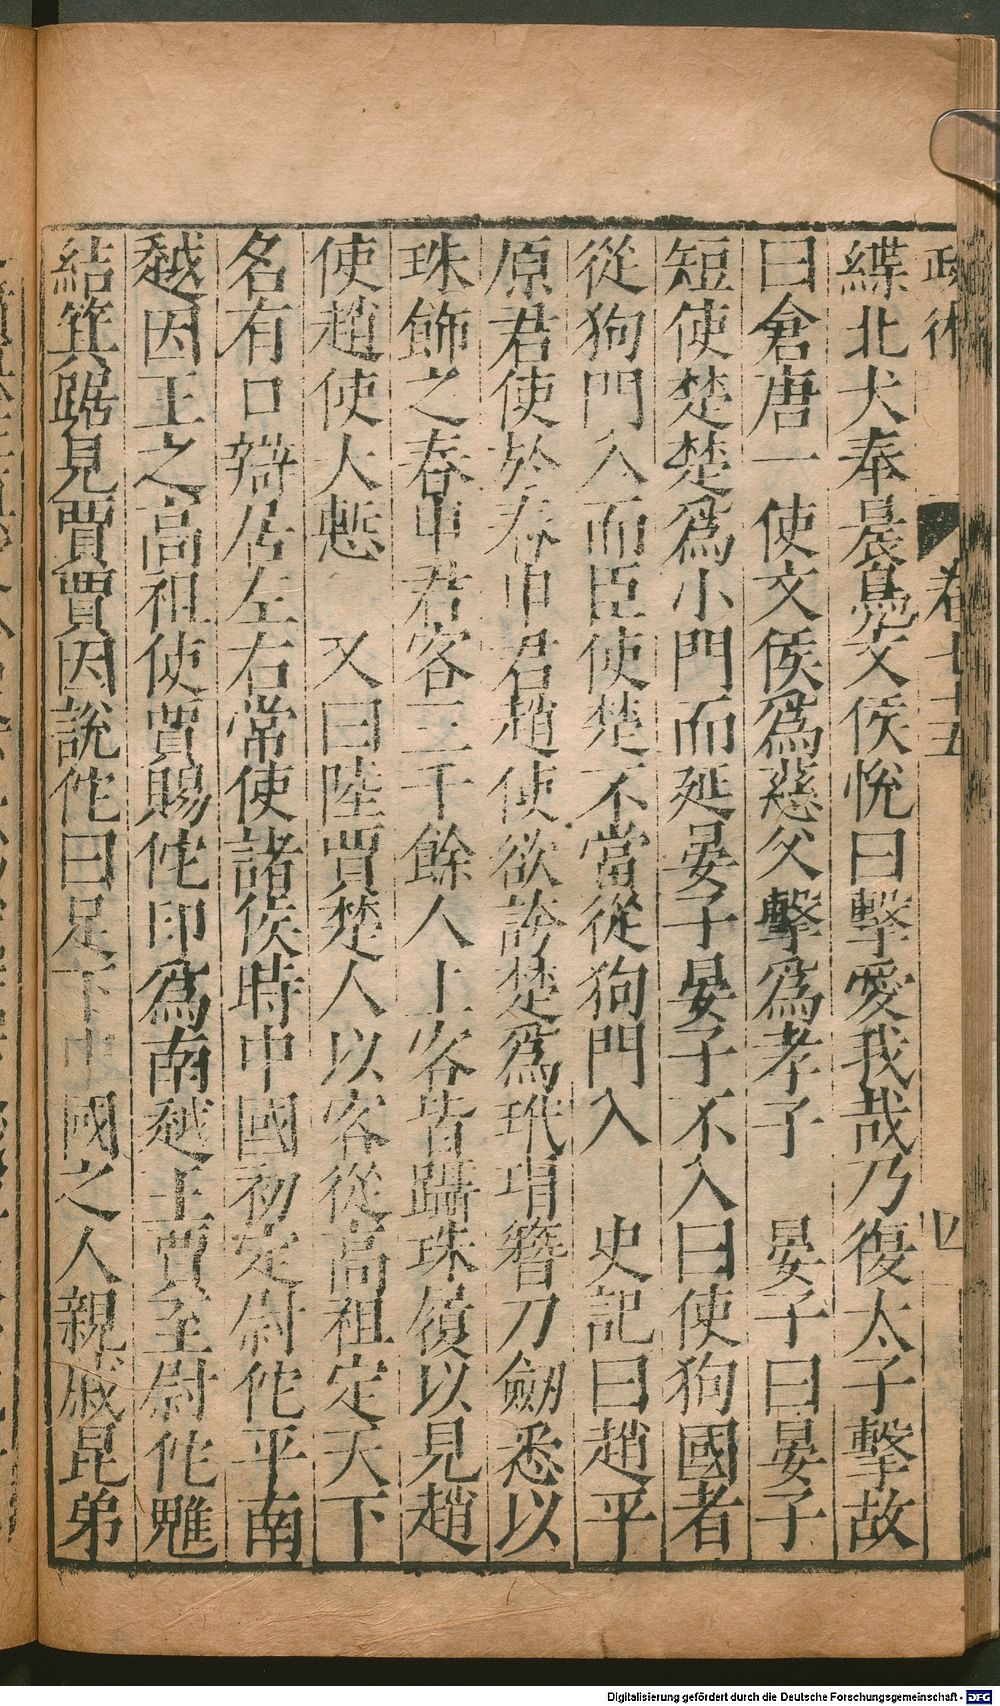 政術 卷七十五 四
緤北犬奉晨鳬文侯悅曰擊愛我哉乃復太子擊故
曰倉唐一使文侯爲慈父擊爲孝子 晏子曰晏子
短使楚楚爲小門而延晏子晏子不入曰使狗國者
從狗門入而臣使楚不當從狗門入 史記曰趙平
原君使於春申君趙使欲誇楚爲玳瑁簪刀劒悉以
珠飾之春申君客三千餘人上客皆躡珠履以見趙
使趙使大慙 又曰陸賈楚人以客從高祖定天下
名有口辯居左右常使諸侯時中國初定尉佗平南
越因王之高祖使賈賜佗印爲南越王賈至尉佗魋
結箕踞見賈賈因說佗曰足下中國之人親戚昆弟
Digitalisierung gefördert durch die Deutsche Forschungsgemeinschaft - DFG